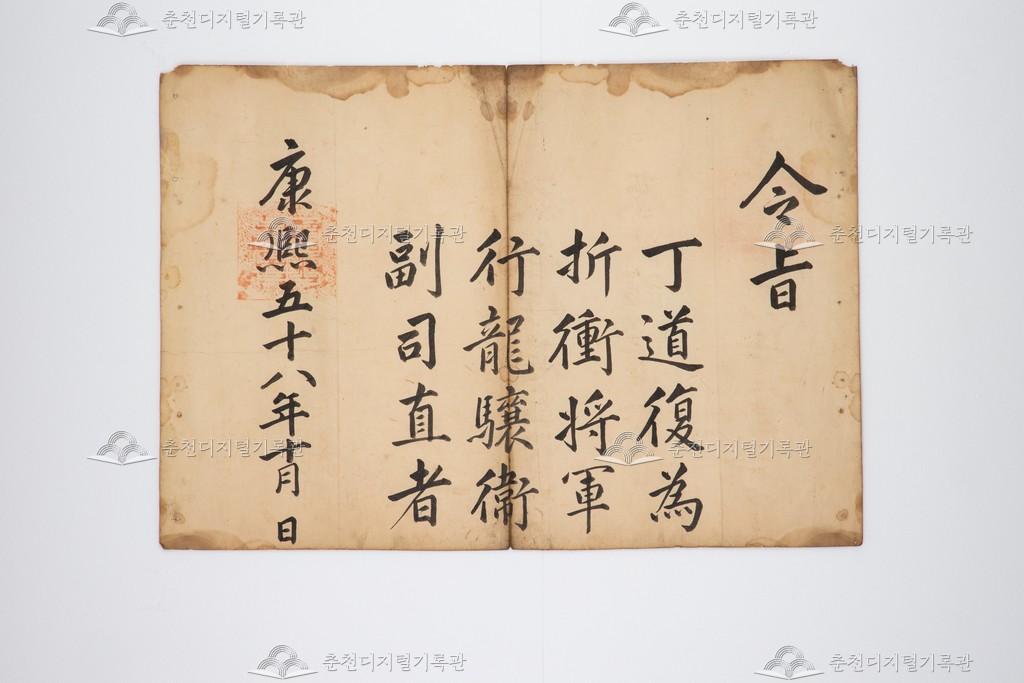 令旨
丁道復為
折衝將軍
行龍驤衛
副司直者
康熙五十八年十月 日
춘천디지털기록관
춘천디지털기록관
춘천디지털기록관
춘천디지털기록관
춘천디지털기록관
춘천디지털기록관
춘천디지털기록관
춘천디지털기록관